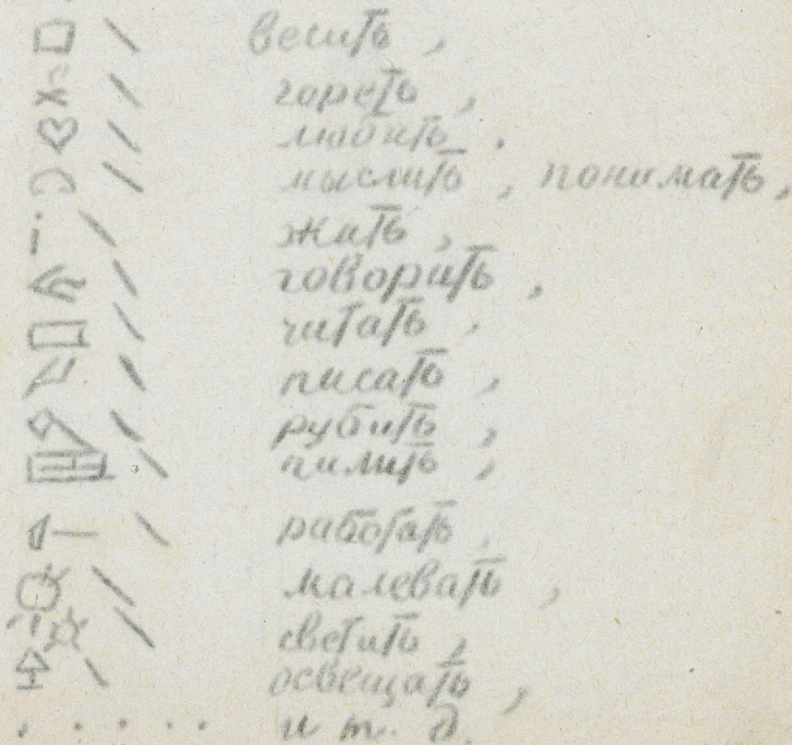 весить,
гореть,
любить.
мыслить, понимать,
жить,
говорить,
читать,
писать,
рубить,
пилить,
работать,
малевать,
светить,
освещать,
..... и т. д.